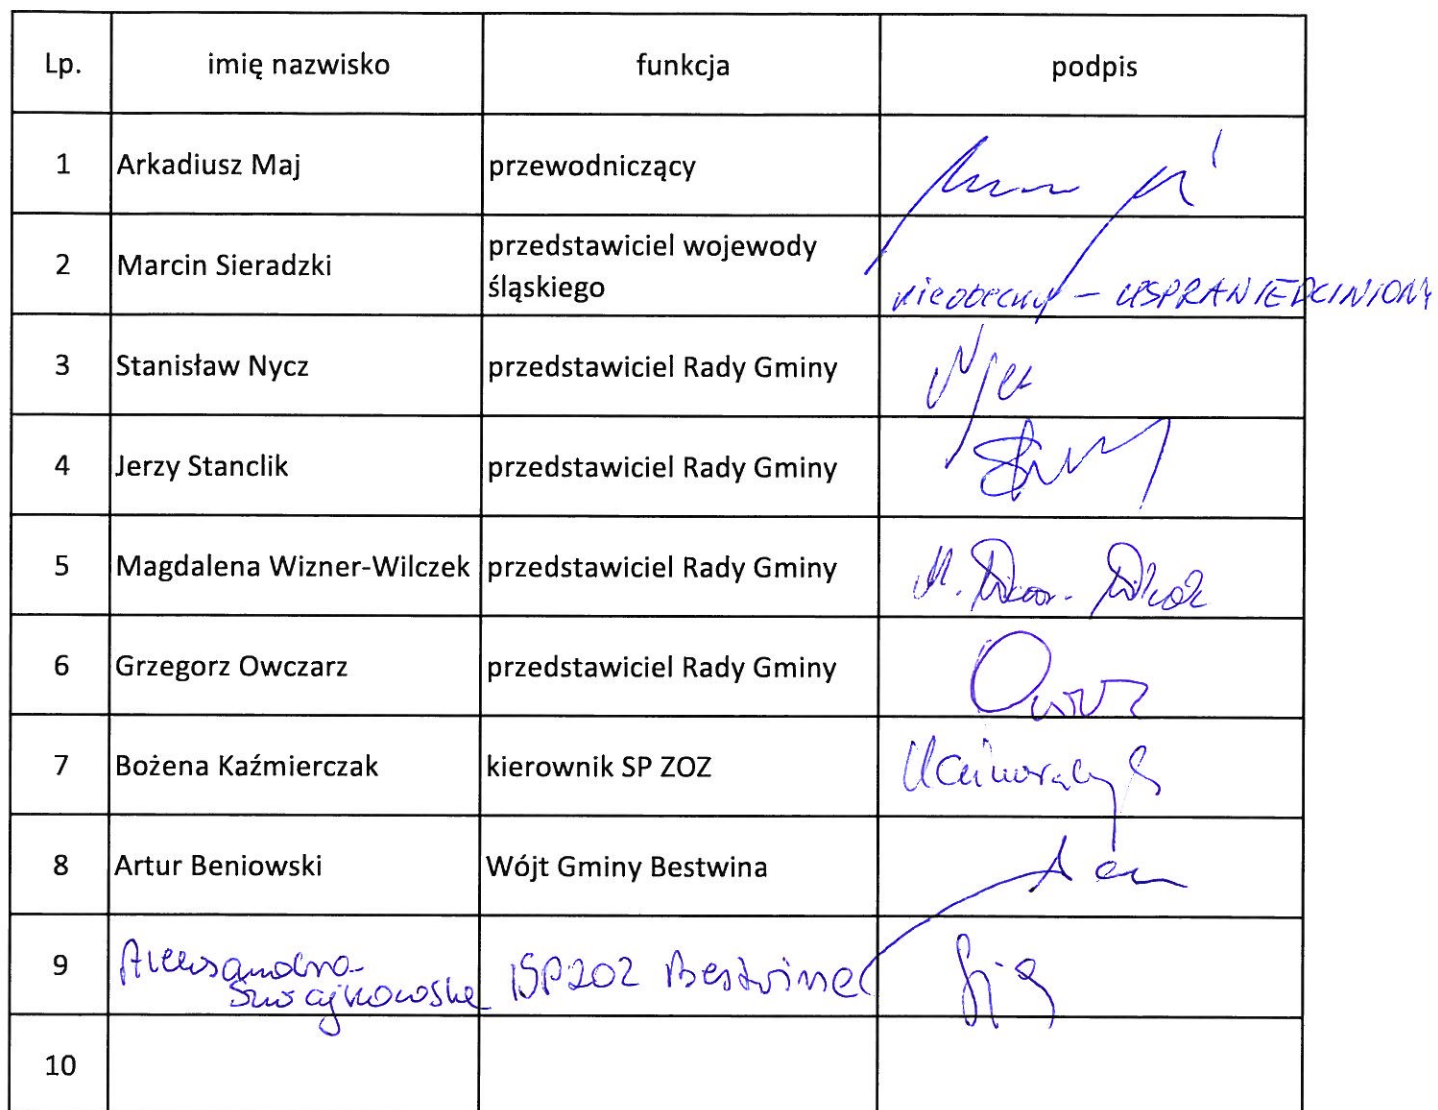 Lp. imię nazwisko funkcja podpis
1 Arkadiusz Maj przewodniczący
2 Marcin Sieradzki przedstawiciel wojewody
śląskiego nieobecny - USPRAWIEDLIWIONY
3 Stanisław Nycz przedstawiciel Rady Gminy
4 Jerzy Stanclik przedstawiciel Rady Gminy
5 Magdalena Wizner-Wilczek przedstawiciel Rady Gminy
6 Grzegorz Owczarz przedstawiciel Rady Gminy
7 Bożena Kaźmierczak kierownik SP ZOZ
8 Artur Beniowski Wójt Gminy Bestwina
9 Aleksandra SPZOZ Bestwina
10